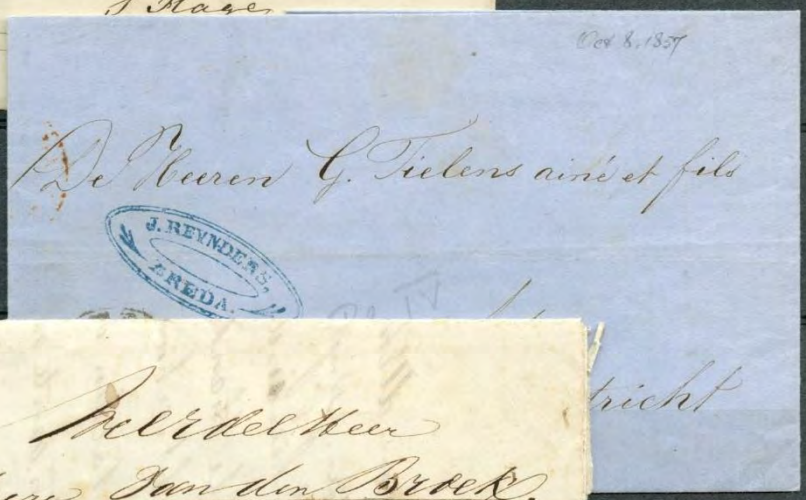 s Hage
Oct 8, 1857
De Heeren G. Tielens ainé et fils
J. REYNDERS,
BREDA.
Pl IV
tricht
Weerdee Heer
Van den Broek,